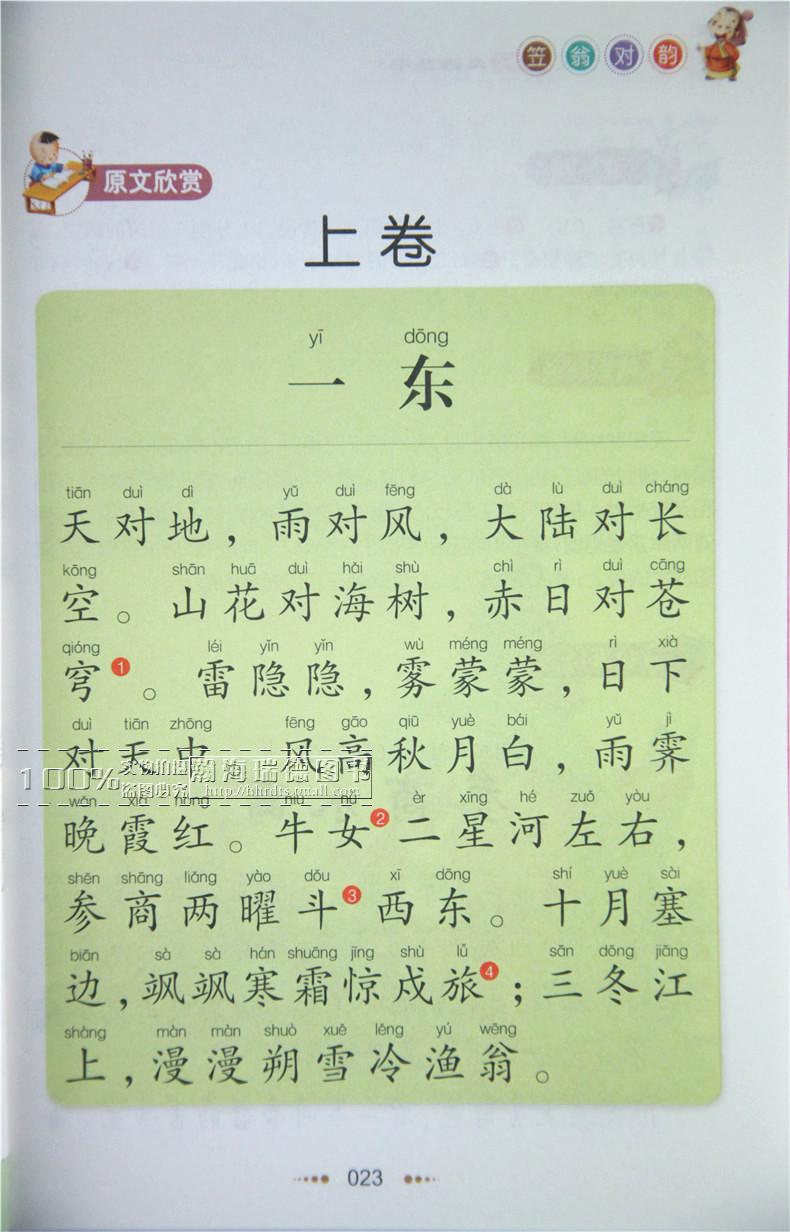 笠翁对韵
原文欣赏
上卷
yī dōng
一 东
tiān duì dì yǔ duì fēng dà lù duì cháng
天对地，雨对风，大陆对长
kōng shān huā duì hǎi shù chì rì duì cāng
空。山花对海树，赤日对苍
qióng léi yǐn yǐn wù méng méng rì xià
穹❶。雷隐隐，雾蒙蒙，日下
duì tiān zhōng fēng gāo qiū yuè bái yǔ jì
对天中。风高秋月白，雨霁
wǎn xiá hóng niú nǚ èr xīng hé zuǒ yòu
晚霞红。牛女❷二星河左右，
shēn shāng liǎng yào dǒu xī dōng shí yuè sài
参商两曜斗❸西东。十月塞
biān sà sà hán shuāng jīng shù lǚ sān dōng jiāng
边，飒飒寒霜惊戍旅❹；三冬江
shàng màn màn shuò xuě lěng yú wēng
上，漫漫朔雪冷渔翁。
100% 实物拍摄 瀚海瑞德图书
盗图必究 http://hhrdts.gmail.com
023